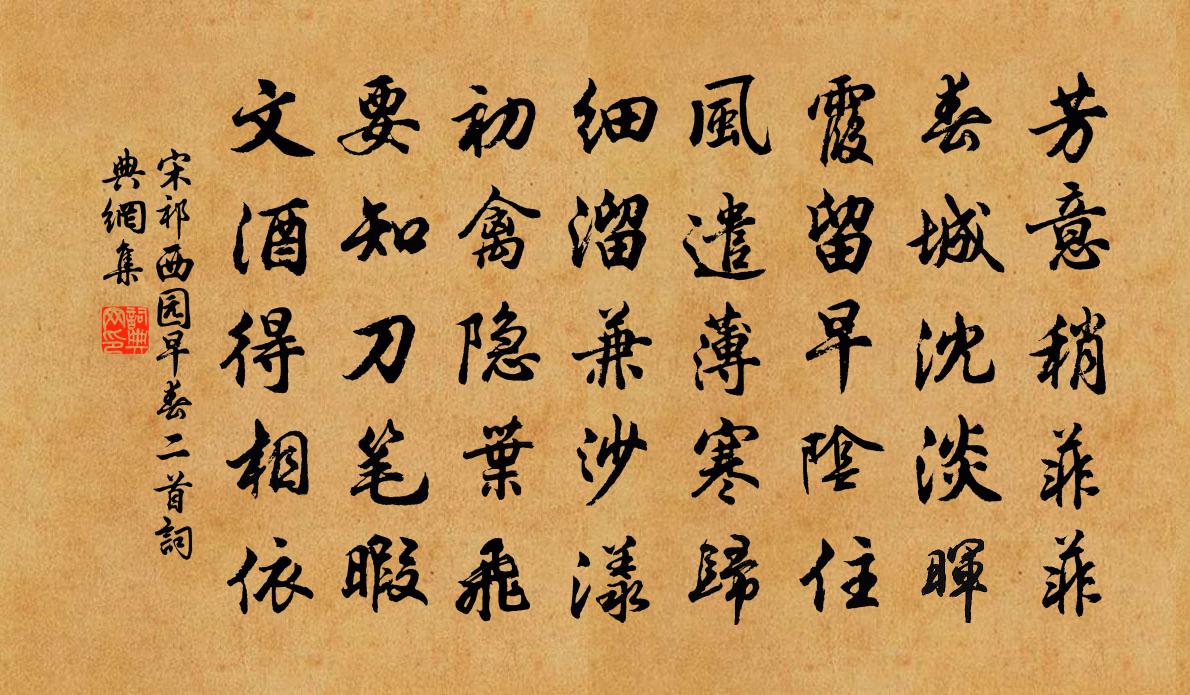 芳意稍菲菲
春城沈淡暉
霞留早陰住
風遣薄寒歸
细溜兼沙漾
初禽隐葉飛
要知刀笔暇
文酒得相依
宋祁西园早春二首詞
典網集
詞典
网印